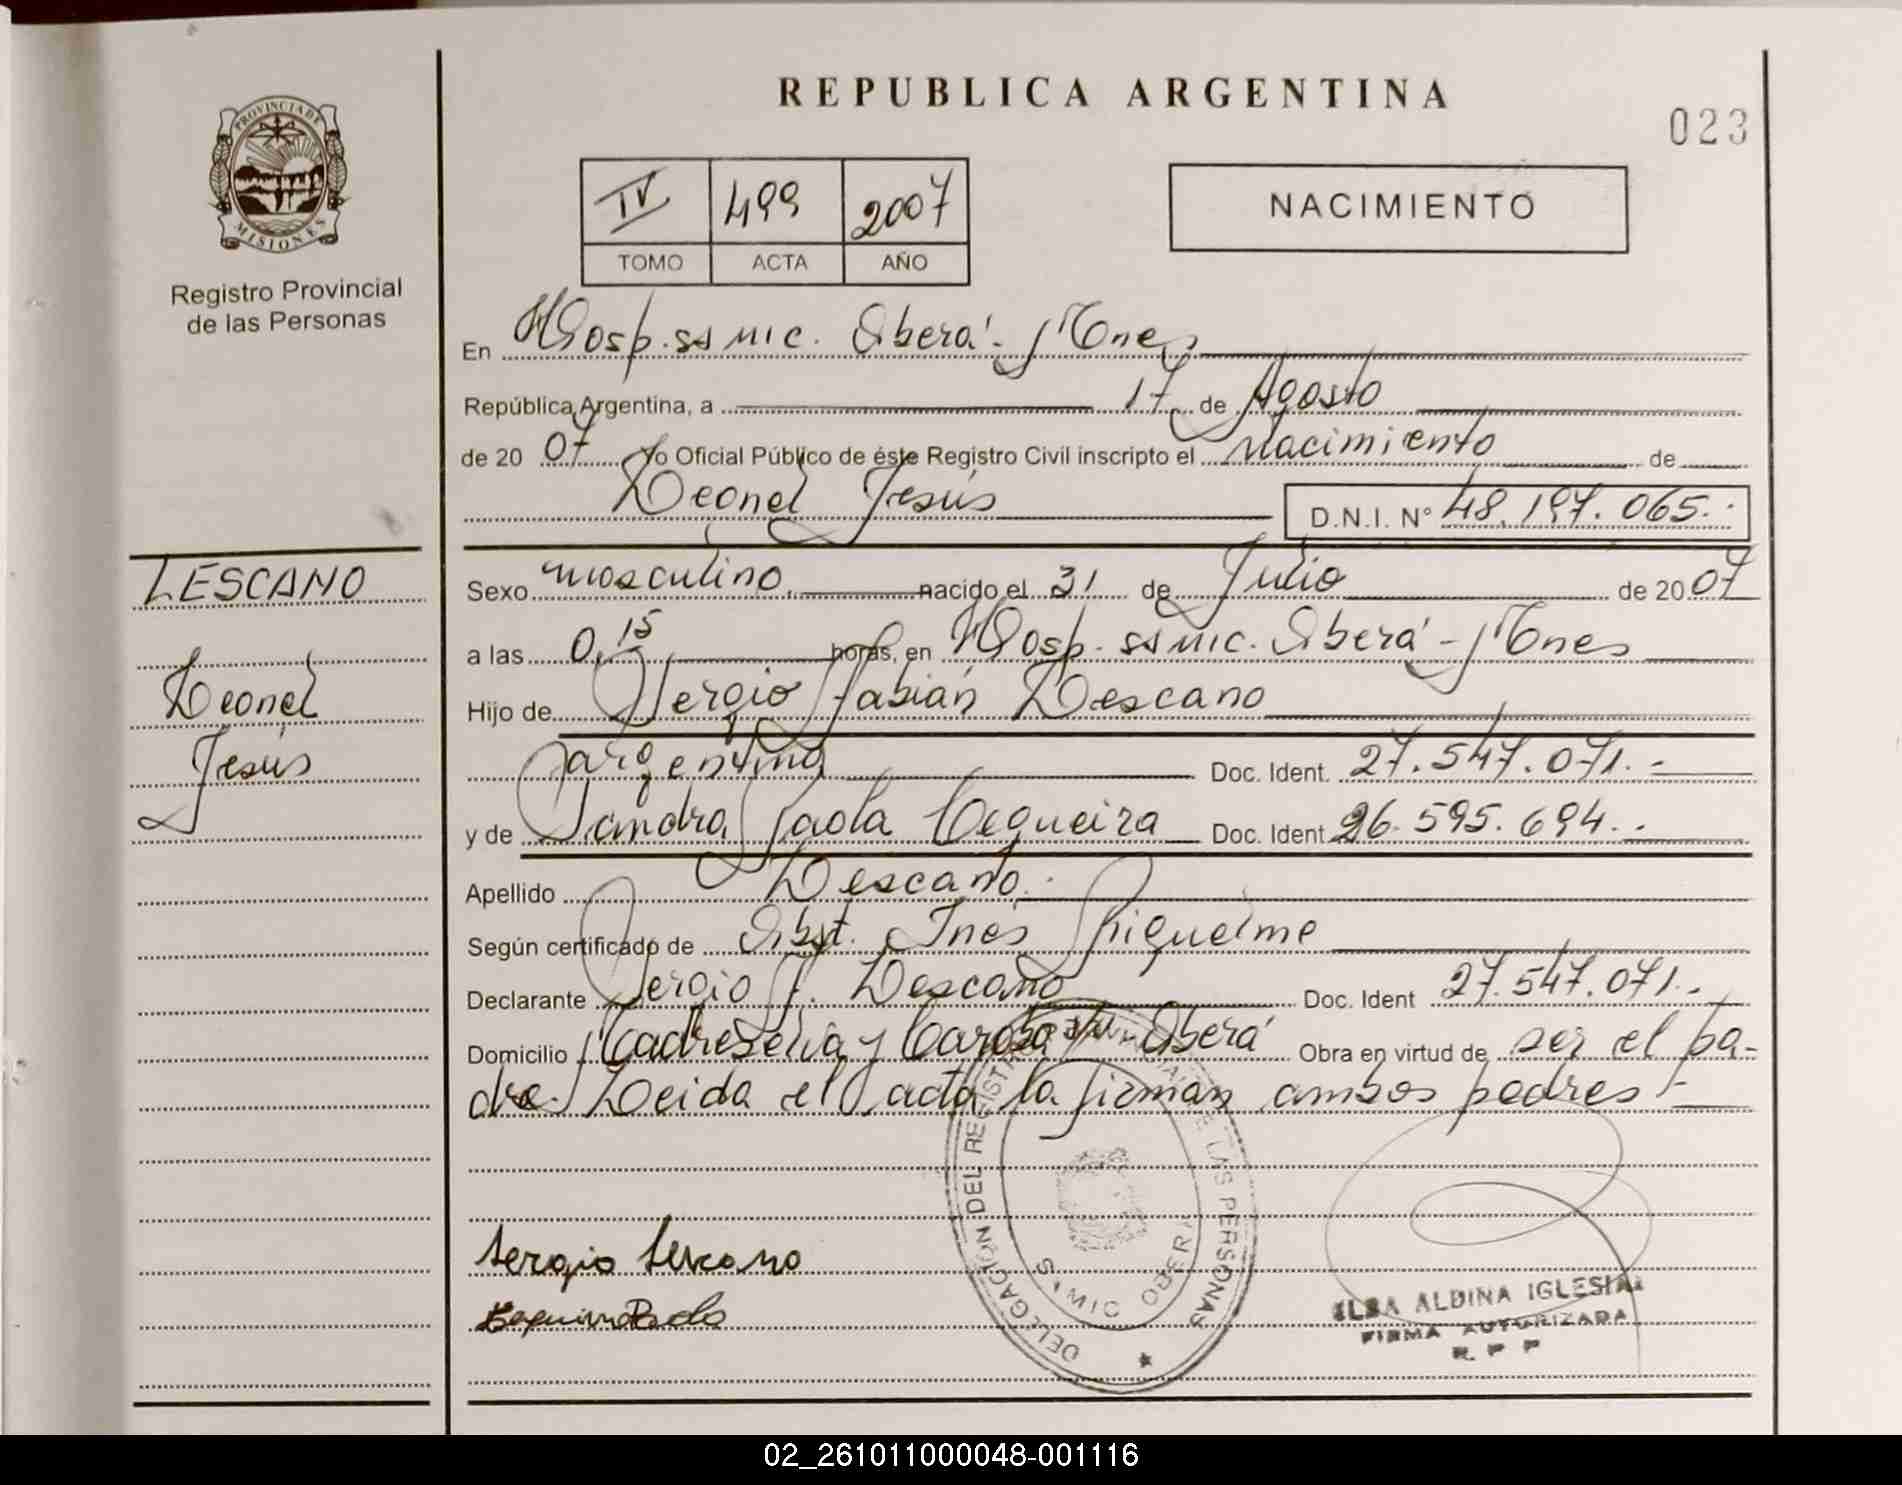 REPUBLICA ARGENTINA
023
PROVINCIA DE
MISIONES
Registro Provincial
de las Personas
IV 499 2007
TOMO ACTA AÑO
NACIMIENTO
En Hosp. SSMIC. Oberá - Mnes
República Argentina, a 17 de Agosto
de 20 07 Yo Oficial Público de éste Registro Civil inscripto el Nacimiento de
Leonel Jesús D.N.I. N° 48.197.065.-
LESCANO
Leonel
Jesús
Sexo masculino nacido el 31 de Julio de 20 07
a las 0,15 horas, en Hosp. SSMIC. Oberá - Mnes
Hijo de Sergio Fabián Lescano
argentina Doc. Ident. 27.547.071.-
y de Sandra Paola Cequeira Doc. Ident 26.595.694.-
Apellido Lescano.
Según certificado de Obst. Inés Riquelme
Declarante Sergio F. Lescano Doc. Ident 27.547.071.-
Domicilio Madreselva y Caroba S/N - Oberá Obra en virtud de ser el pa-
dre. Leida el acta la firman ambos padres.-
Sergio Lescano
DELEGACIÓN DEL REGISTRO PROVINCIAL DE LAS PERSONAS
SAMIC OBERA
ELBA ALDINA IGLESIAS
FIRMA AUTORIZADA
R. P. P
02_261011000048-001116